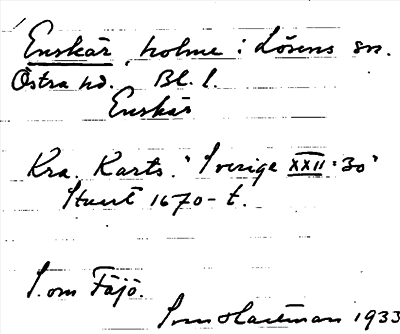 Enskär, holme i Lösens sn.
Östra hd. Bl. l.
Enskär
Kra. Kart. "Sverige XXII:30"
Stuert 1670-t.
S. om Fäjö.
Sven Hartman 1933